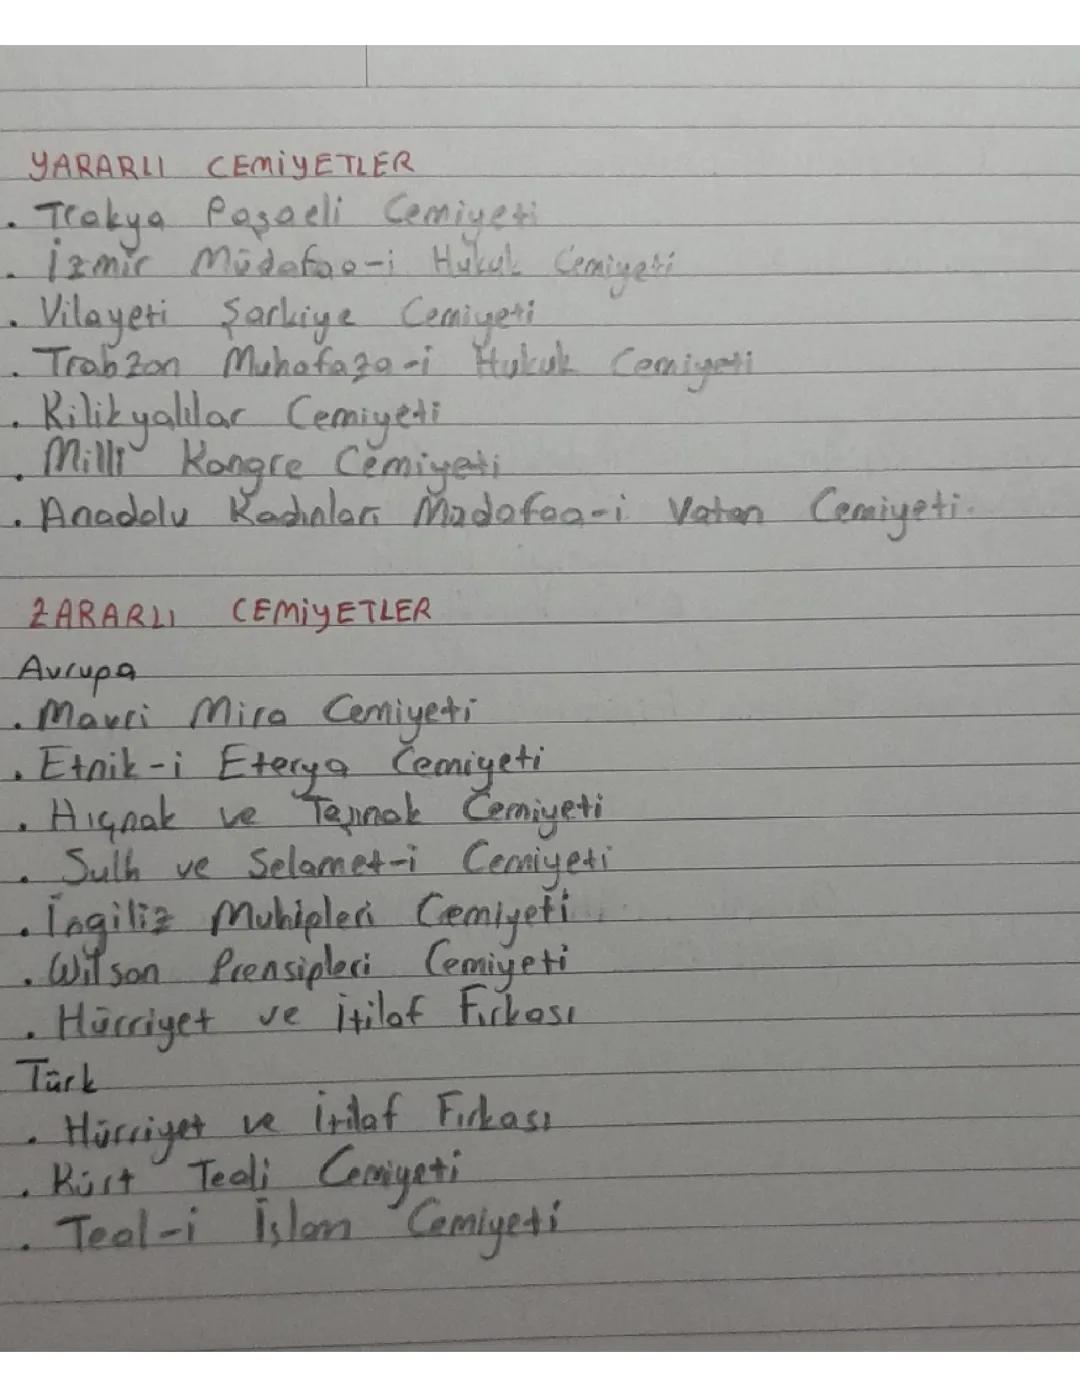 YARARLI CEMİYETLER
. Trakya Paşaeli Cemiyeti
. İzmir Müdafaa-i Hukuk Cemiyeti
. Vilayeti Şarkiye Cemiyeti
. Trabzon Muhafaza-i Hukuk Cemiyeti
. Kilikyalılar Cemiyeti
. Milli Kongre Cemiyeti
. Anadolu Kadınları Müdafaa-i Vatan Cemiyeti.
ZARARLI CEMİYETLER
Avrupa
. Mavri Mira Cemiyeti
. Etnik-i Eterya Cemiyeti
. Hıçnak ve Taşnak Cemiyeti
. Sulh ve Selamet-i Cemiyeti
. İngiliz Muhipleri Cemiyeti
. Wilson Prensipleri Cemiyeti
. Hürriyet ve İtilaf Fırkası
Türk
. Hürriyet ve İtilaf Fırkası
. Kürt Teali Cemiyeti
. Teal-i İslam Cemiyeti